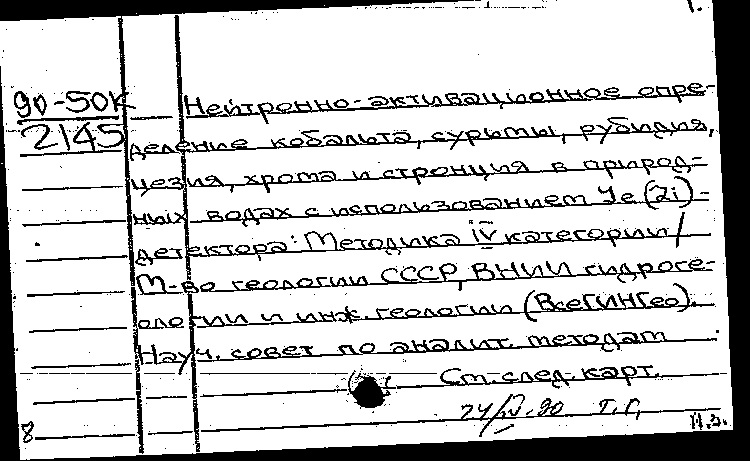 1.
90-50К
2145
Нейтронно-активационное опре-
деление кобальта, сурьмы, рубидия,
цезия, хрома и стронция в природ-
ных водах с использованием Ge (Li)-
детектора: Методика IV категории/
М-во геологии СССР, ВНИИ гидроге-
ологии и инж. геологии (ВсеГИНГео).
Науч. совет по аналит. методам
См. след. карт.
24/IV-90 Т.С,
8
Н.З.